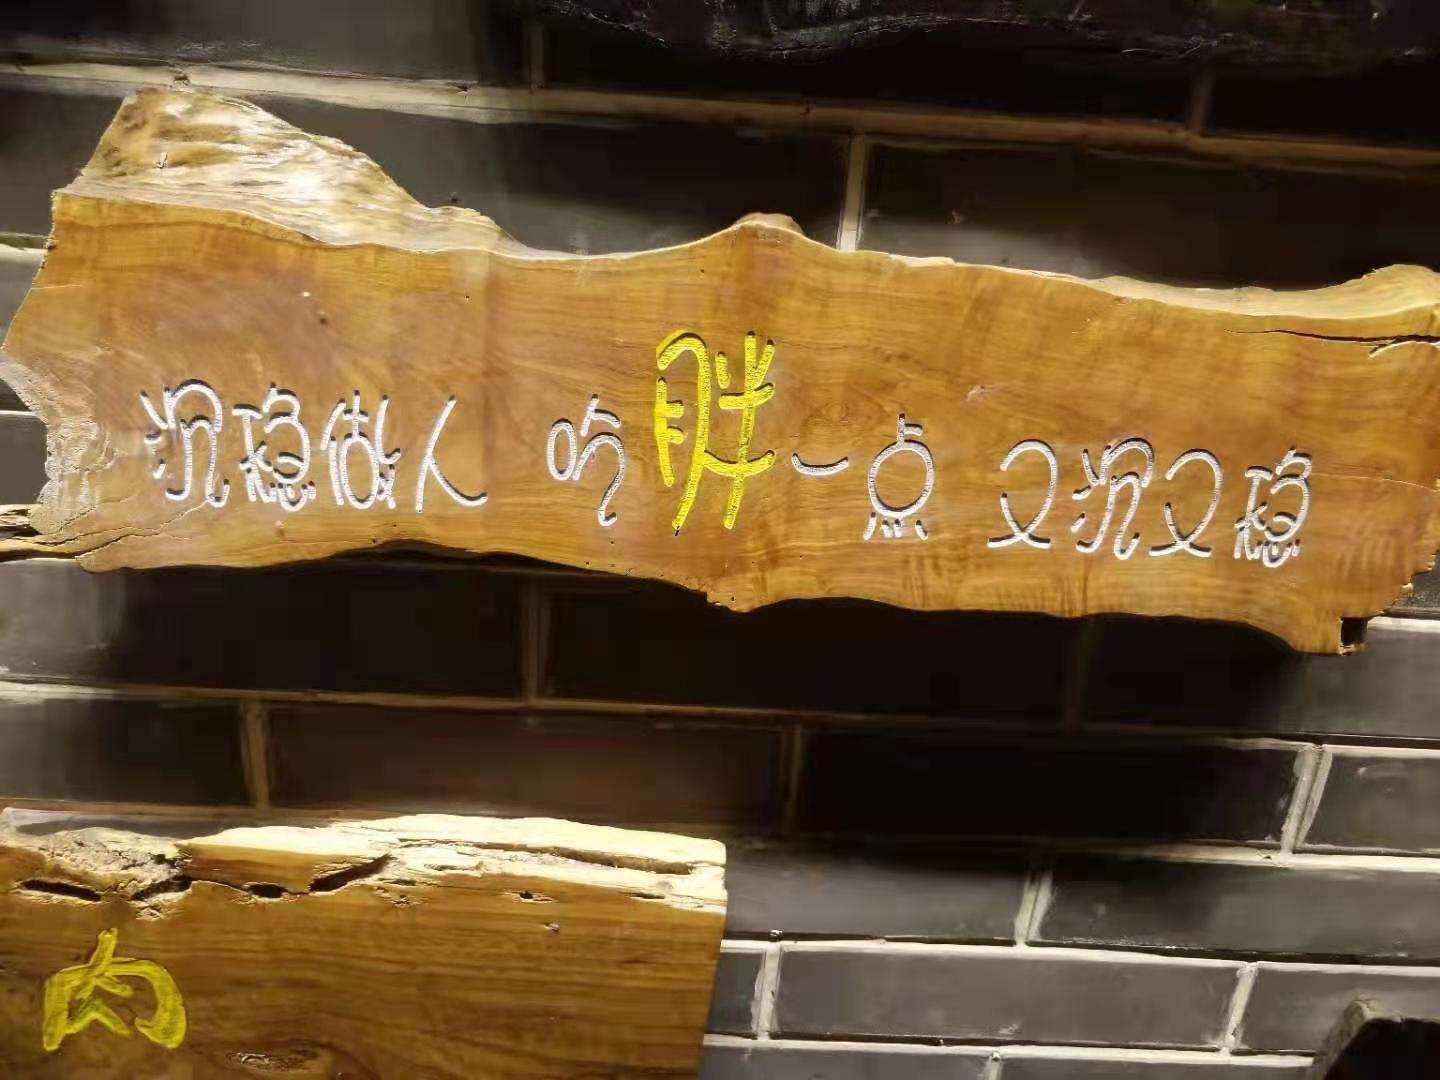 沉稳做人 吃胖一点 又沉又稳
肉